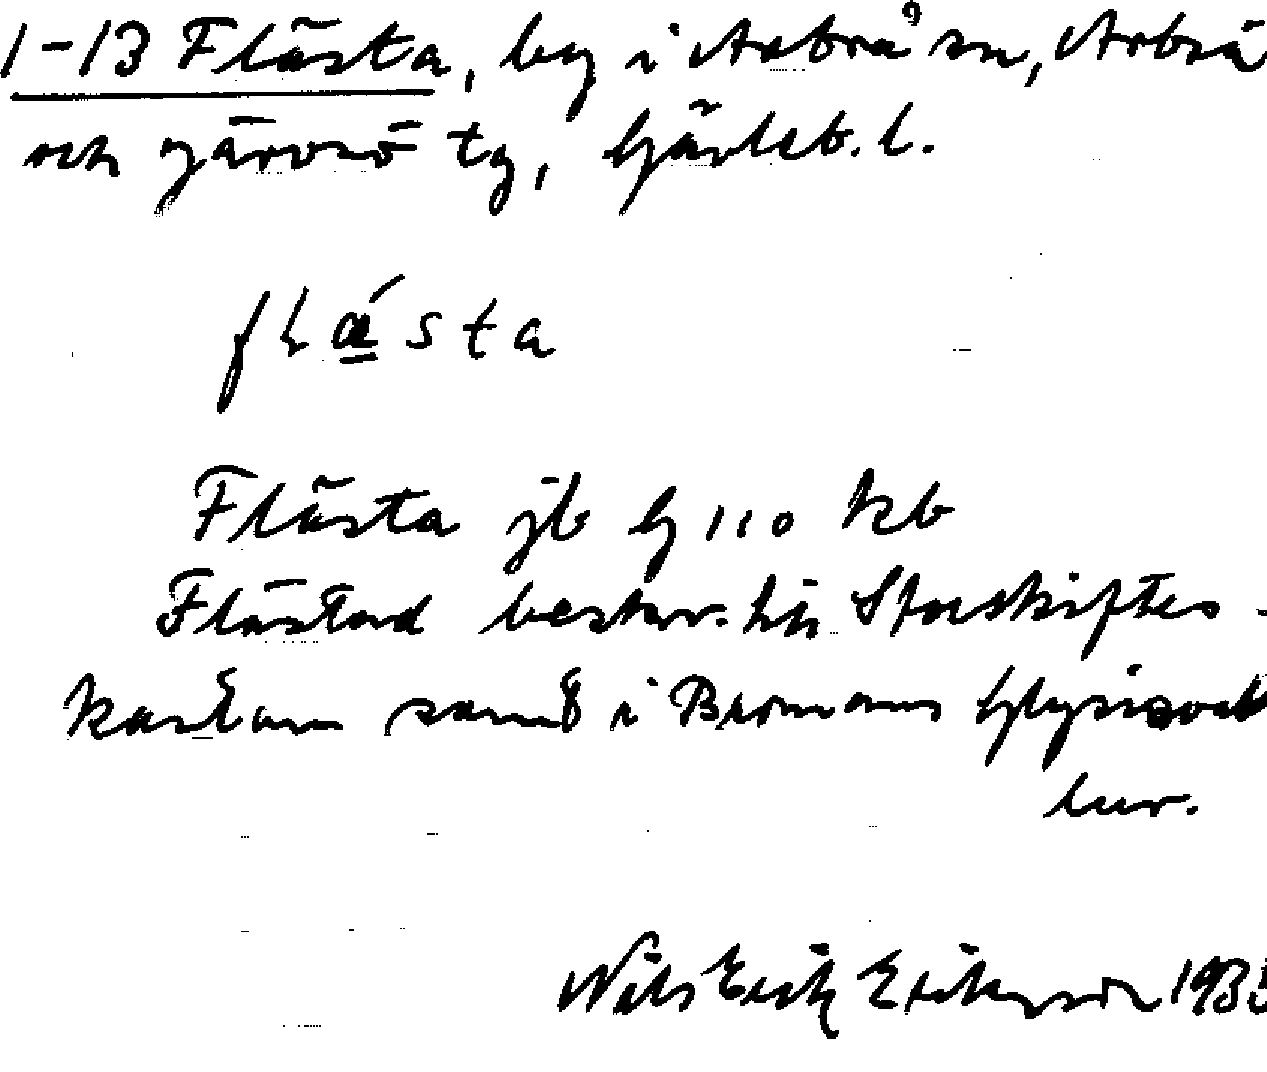 1-13 Flästa, by i Arbrå sn, Arbrå
och Järvsö tg, Gävleb. l.
flǽsta
Flästa jb Gj 110 kb
Flästad beskr. till Storskiftes-
kartan samt i Bromans Glysisvall
lur.
Nils Erik Eriksson 193